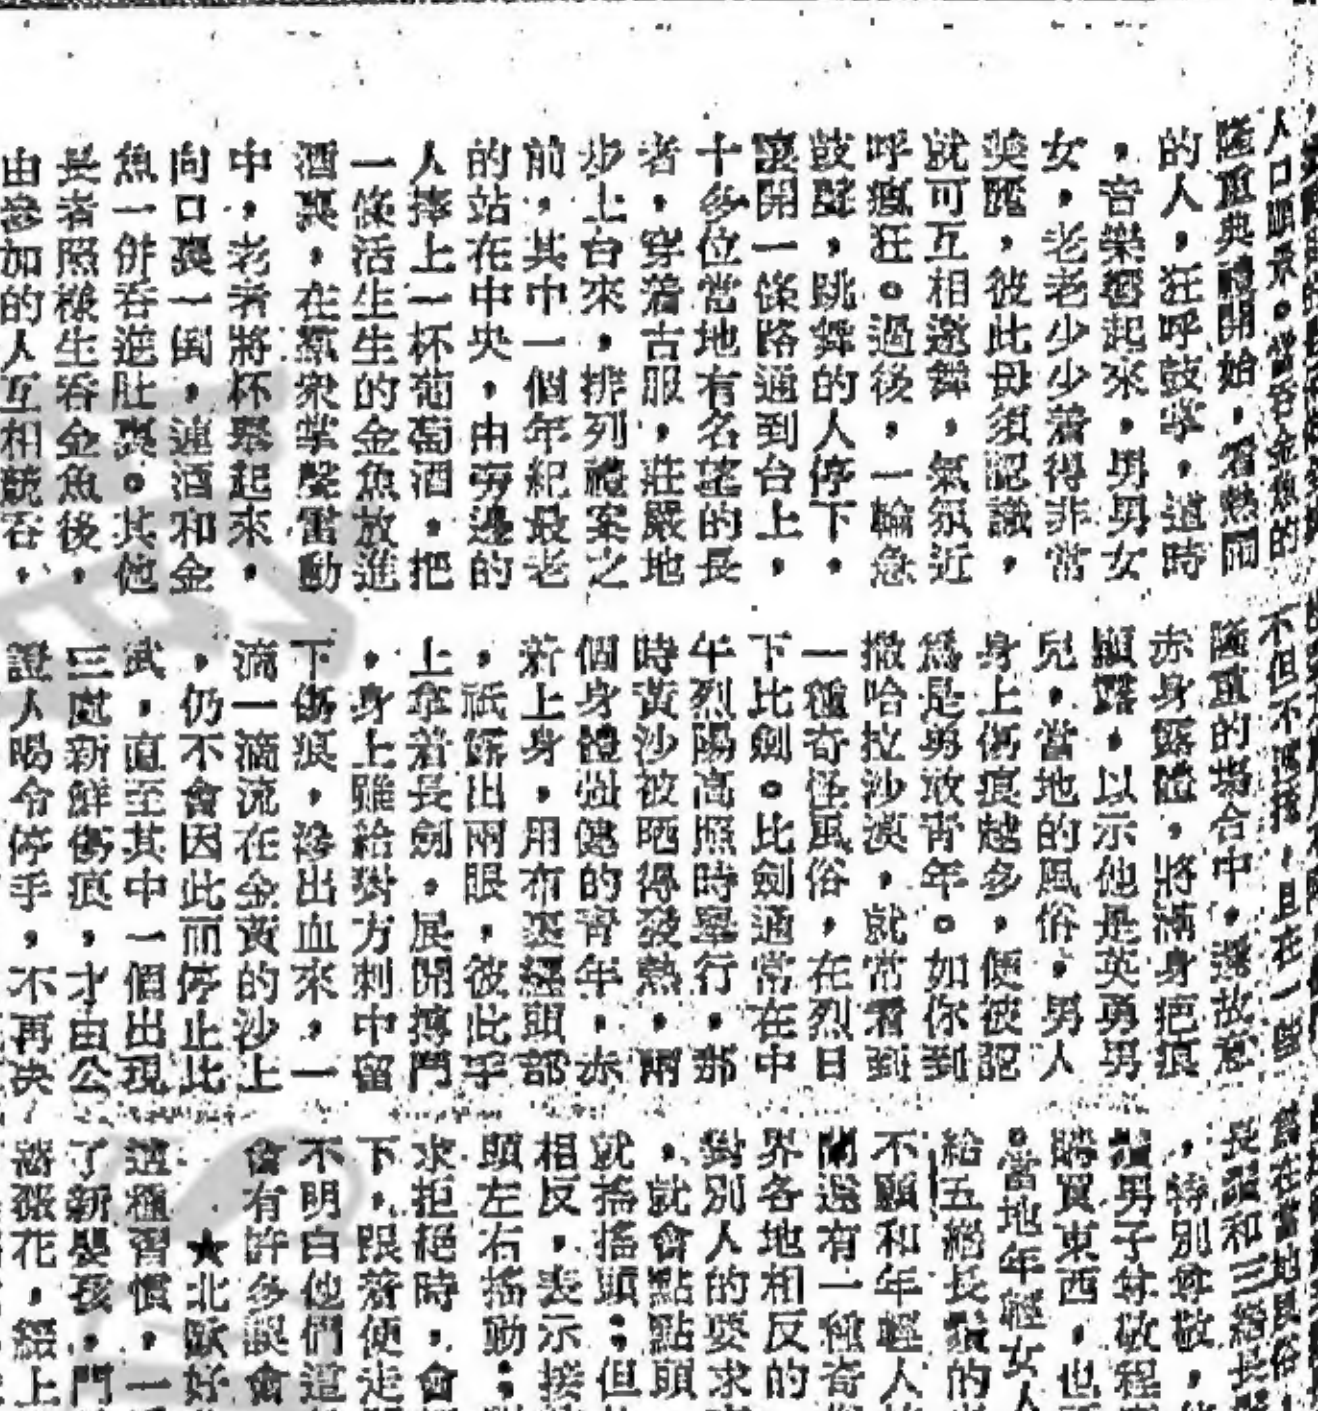 隆重典禮開始,看熱鬧
的人,狂呼鼓掌,這時
,音樂響起來,男男女
女,老老少少着得非常
美麗,彼此毋須認識,
就可互相邀舞,氣氛近
呼瘋狂。過後,一輪急
鼓聲,跳舞的人停下,
讓開一條路通到台上,
十多位當地有名望的長
者,穿着古服,莊嚴地
步上台來,排列禮案之
前,其中一個年紀最老
的站在中央,由旁邊的
人捧上一杯葡萄酒,把
一條活生生的金魚放進
酒裏,在羣衆掌聲雷動
中,老者將杯舉起來,
向口裏一倒,連酒和金
魚一併吞進肚裏。其他
長者照樣生吞金魚後,
由參加的人互相競吞,
隆重的場合中,還故意
赤身露體,將滿身疤痕
顯露,以示他是英勇男
兒,當地的風俗,男人
身上傷痕越多,便被認
爲是勇敢青年。如你到
撒哈拉沙漠,就常看到
一種奇怪風俗,在烈日
下比劍。比劍通常在中
午烈陽高照時舉行,那
時黃沙被晒得發熱,兩
個身體強健的青年,赤
着上身,用布裹纏頭部
,祇露出兩眼,彼此手
上拿着長劍,展開搏鬥
,身上雖給對方刺中留
下傷痕,滲出血來,一
滴一滴流在金黃的沙上
,仍不會因此而停止比
武,直至其中一個出現
三處新鮮傷痕,才由公
證人喝令停手,不再决
,特別尊敬,
男子尊敬程
購買東西,也
當地年輕女人
給五綹長鬚的
不願和年輕人
還有一種奇
界各地相反的
對別人的要求
,就會點點頭
就搖搖頭;但
相反,表示接
頭左右搖動;
求拒絕時,會
下,跟着便走
不明白他們這
會有許多誤會
★北歐好
這種習慣,一
了新嬰孩,門
薔薇花,綴上